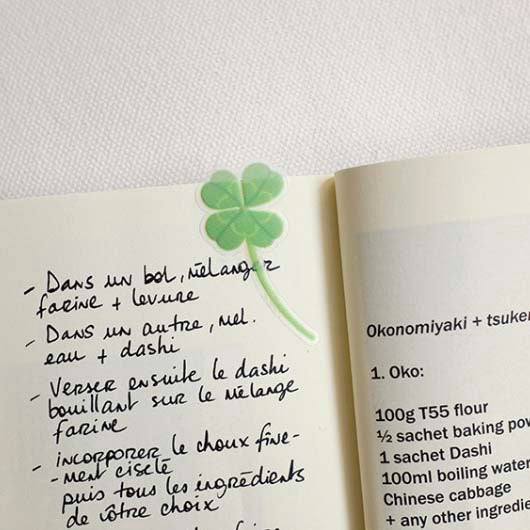 - Dans un bol, mélanger
farine + levure
- Dans un autre, mél.
eau + dashi
- Verser ensuite le dashi
bouillant sur le mélange
farine
- incorporer le choux fine-
- ment ciselé
puis tous les ingrédients
de vôtre choix
Okonomiyaki + tsuke
1. Oko:
100g T55 flour
½ sachet baking pow
1 sachet Dashi
100ml boiling water
Chinese cabbage
+ any other ingredie